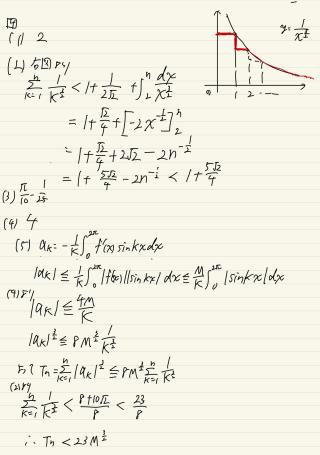 4
(1) 2
(2) 右図より
y = 1/x^{3/2}
0 1 2 ……
Σ_{k=1}^{n} 1/k^{3/2} < 1 + 1/(2√2) + ∫_2^n dx/x^{3/2}
= 1 + √2/4 + [-2x^{-1/2}]_2^n
= 1 + √2/4 + 2√2/2 - 2n^{-1/2}
= 1 + 5√2/4 - 2n^{-1/2} < 1 + 5√2/4
(3) π/10 -
(4) 4
(5) a_k = -1/k ∫_0^{2π} f'(x) sin kx dx
|a_k| ≦ 1/k ∫_0^{2π} |f'(x)||sin kx| dx ≦ M/k ∫_0^{2π} |sin kx| dx
(4)より
|a_k| ≦ 4M/k
|a_k|^{3/2} ≦ 8M^{3/2} 1/k^{3/2}
よって T_n = Σ_{k=1}^{n} |a_k|^{3/2} ≦ 8M^{3/2} Σ_{k=1}^{n} 1/k^{3/2}
(2)より
Σ_{k=1}^{n} 1/k^{3/2} < (8+10√2)/8 < 23/8
∴ T_n < 23M^{3/2}